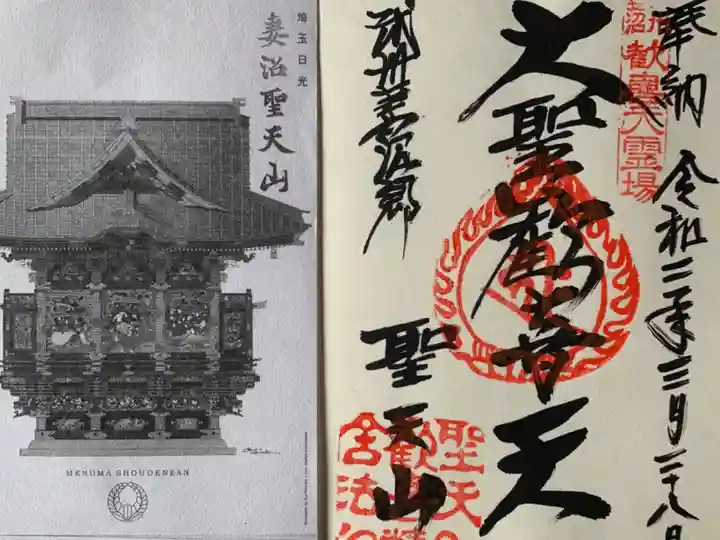 埼玉日光
妻沼聖天山
MENUMA SHOUDENZAN
奉納 令和二年三月二十八日
歓喜天霊場
大聖歓喜天
武州妻沼郷
聖天山